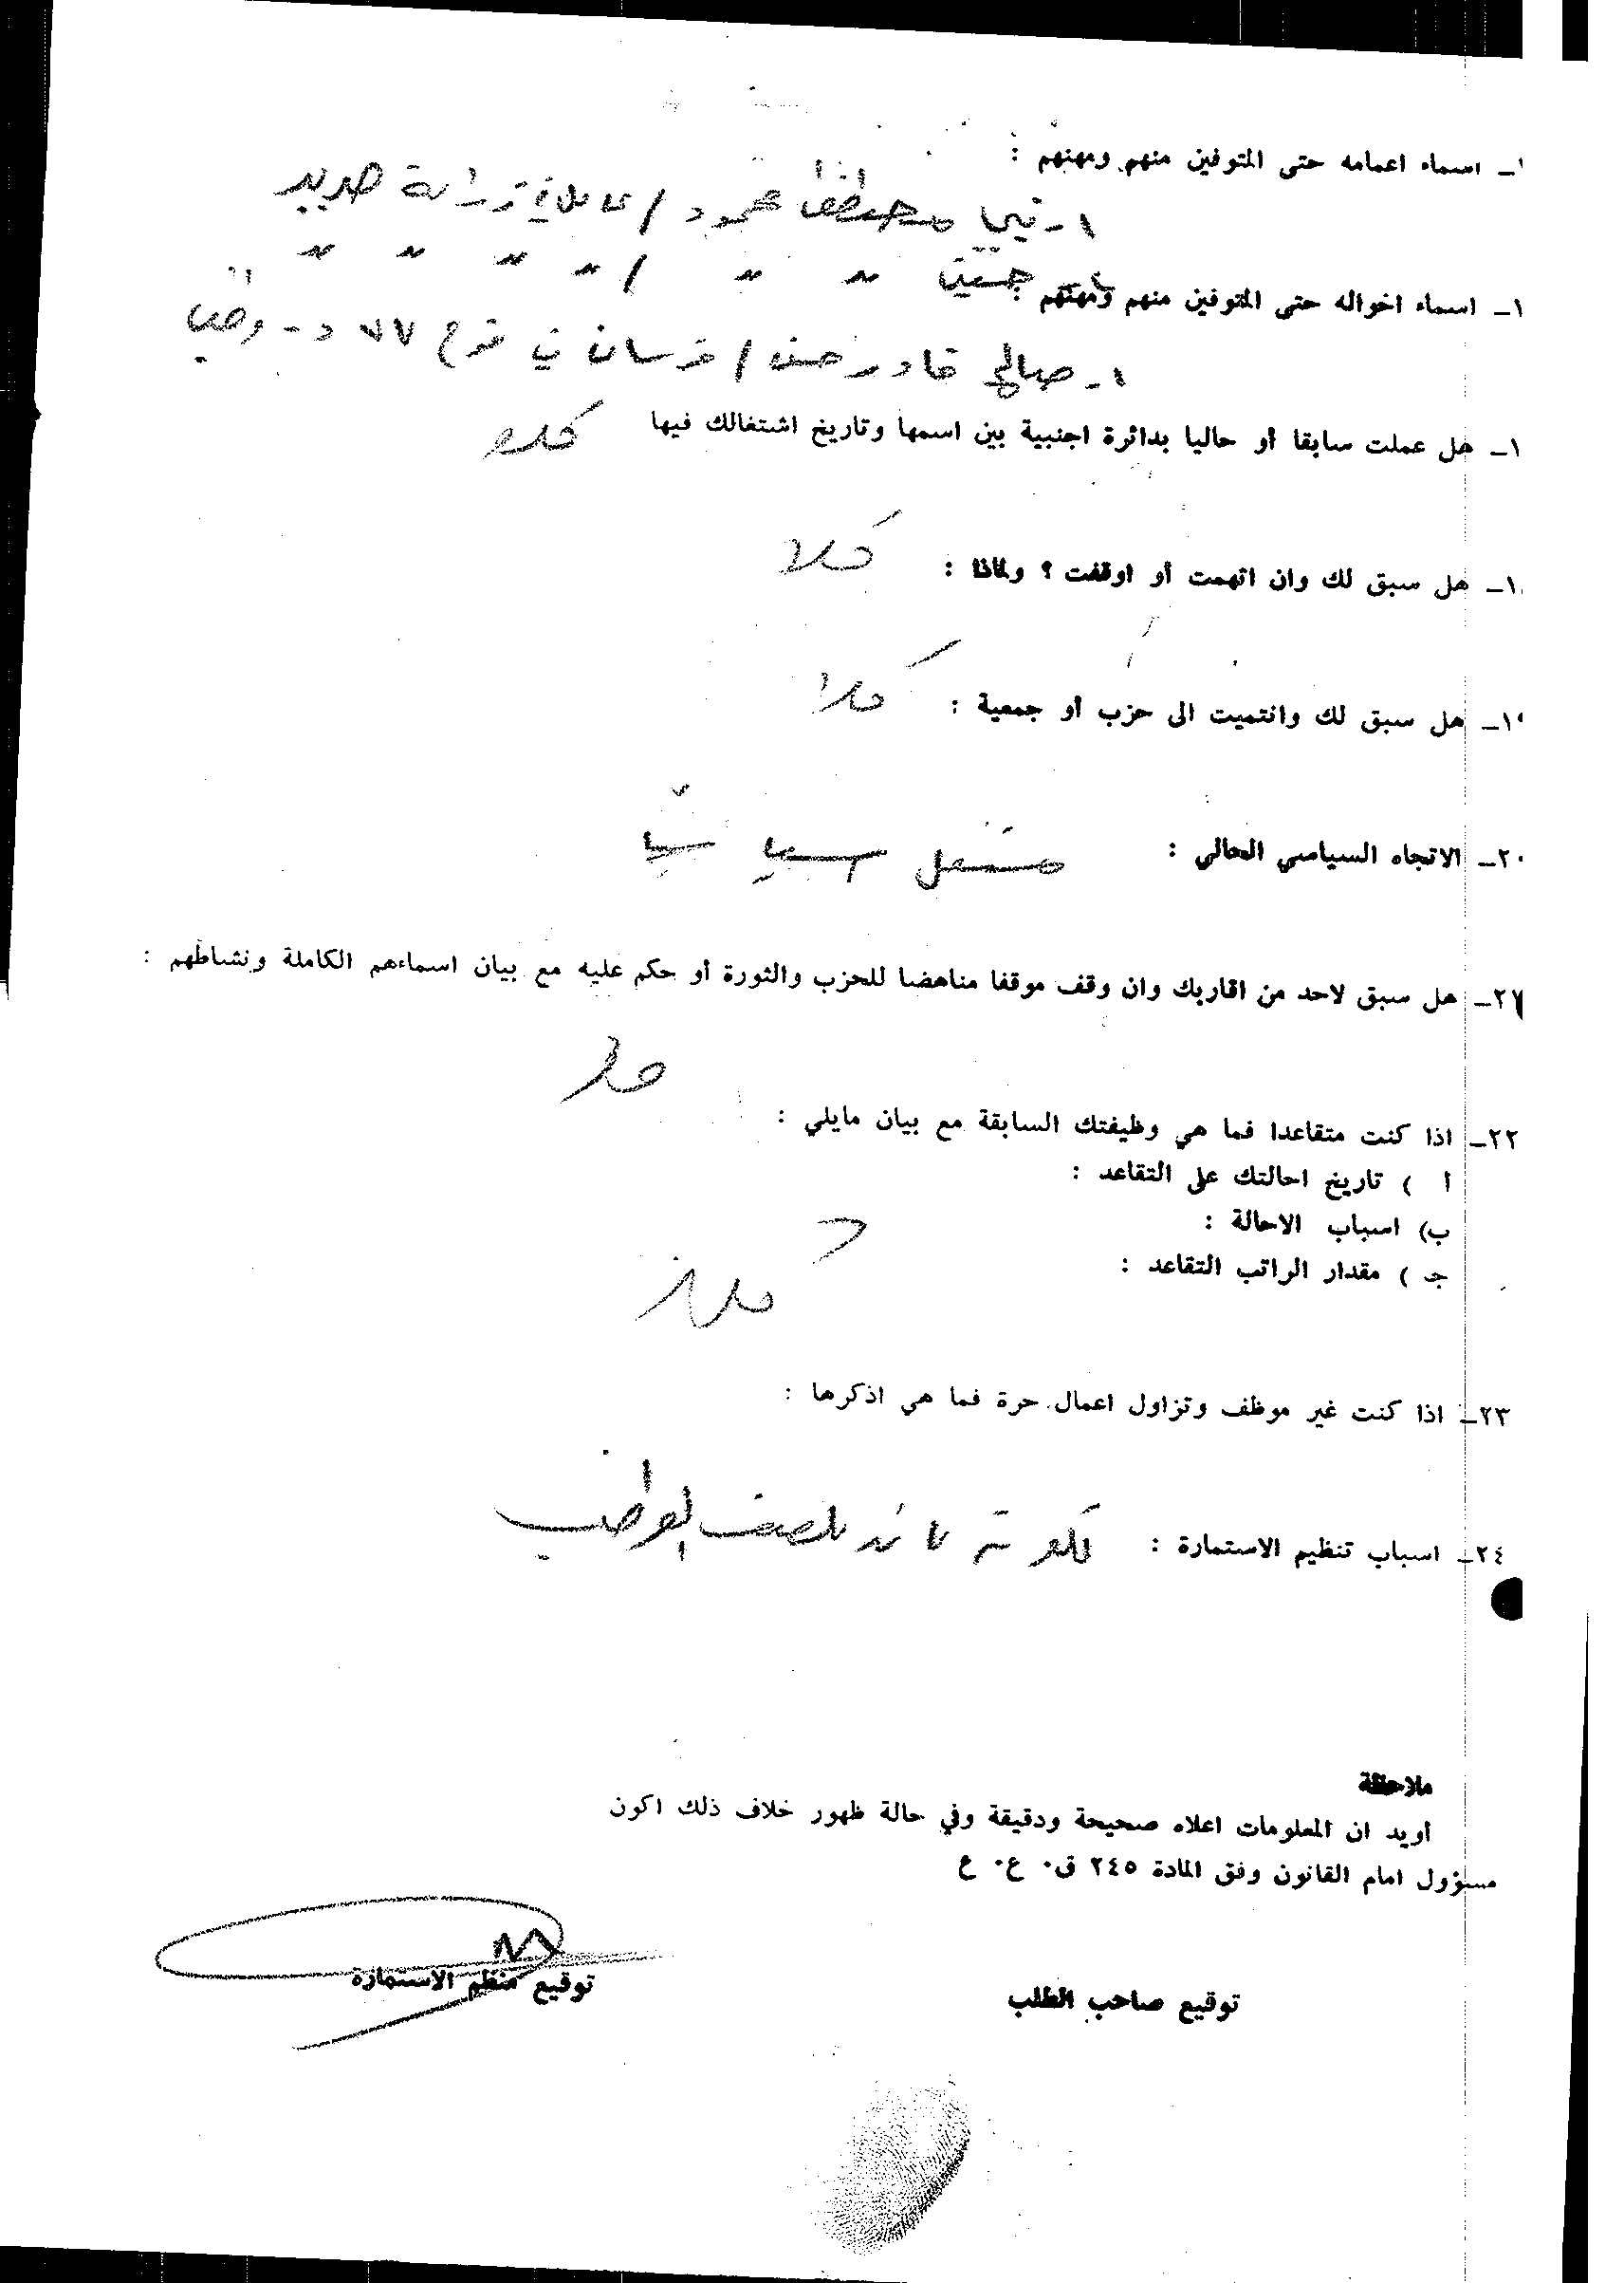 ـ اسماء اعمامه حتى المتوفين منهم ومهنهم :
١ـ نبي مصطفى محمود /
حسين 〃 〃 / 〃 〃 〃 〃
١ـ اسماء اخواله حتى المتوفين منهم ومهنهم :
١ـ صالح قادر حسن / فرسان في فوج ٧٧ د
١ـ هل عملت سابقا أو حاليا بدائرة اجنبية بين اسمها وتاريخ اشتغالك فيها كلا
١ـ هل سبق لك وان اتهمت أو اوقفت ؟ ولماذا : كلا
١ـ هل سبق لك وانتميت الى حزب أو جمعية : كلا
٢٠ـ الاتجاه السياسي الحالي : مستقل
٢١ـ هل سبق لاحد من اقاربك وان وقف موقفا مناهضا للحزب والثورة أو حكم عليه مع بيان اسماءهم الكاملة ونشاطهم :
كلا
٢٢ـ اذا كنت متقاعدا فما هي وظيفتك السابقة مع بيان مايلي :
أ ) تاريخ احالتك على التقاعد :
ب) اسباب الاحالة :
جـ ) مقدار الراتب التقاعد :
كلا
٢٣ـ اذا كنت غير موظف وتزاول اعمال حرة فما هي اذكرها :
٢٤ـ اسباب تنظيم الاستمارة :
ملاحظة
أويد ان المعلومات اعلاه صحيحة ودقيقة وفي حالة ظهور خلاف ذلك اكون
مسؤول امام القانون وفق المادة ٢٤٥ ق٠ ع٠ ع
توقيع صاحب الطلب
توقيع منظم الاستمارة